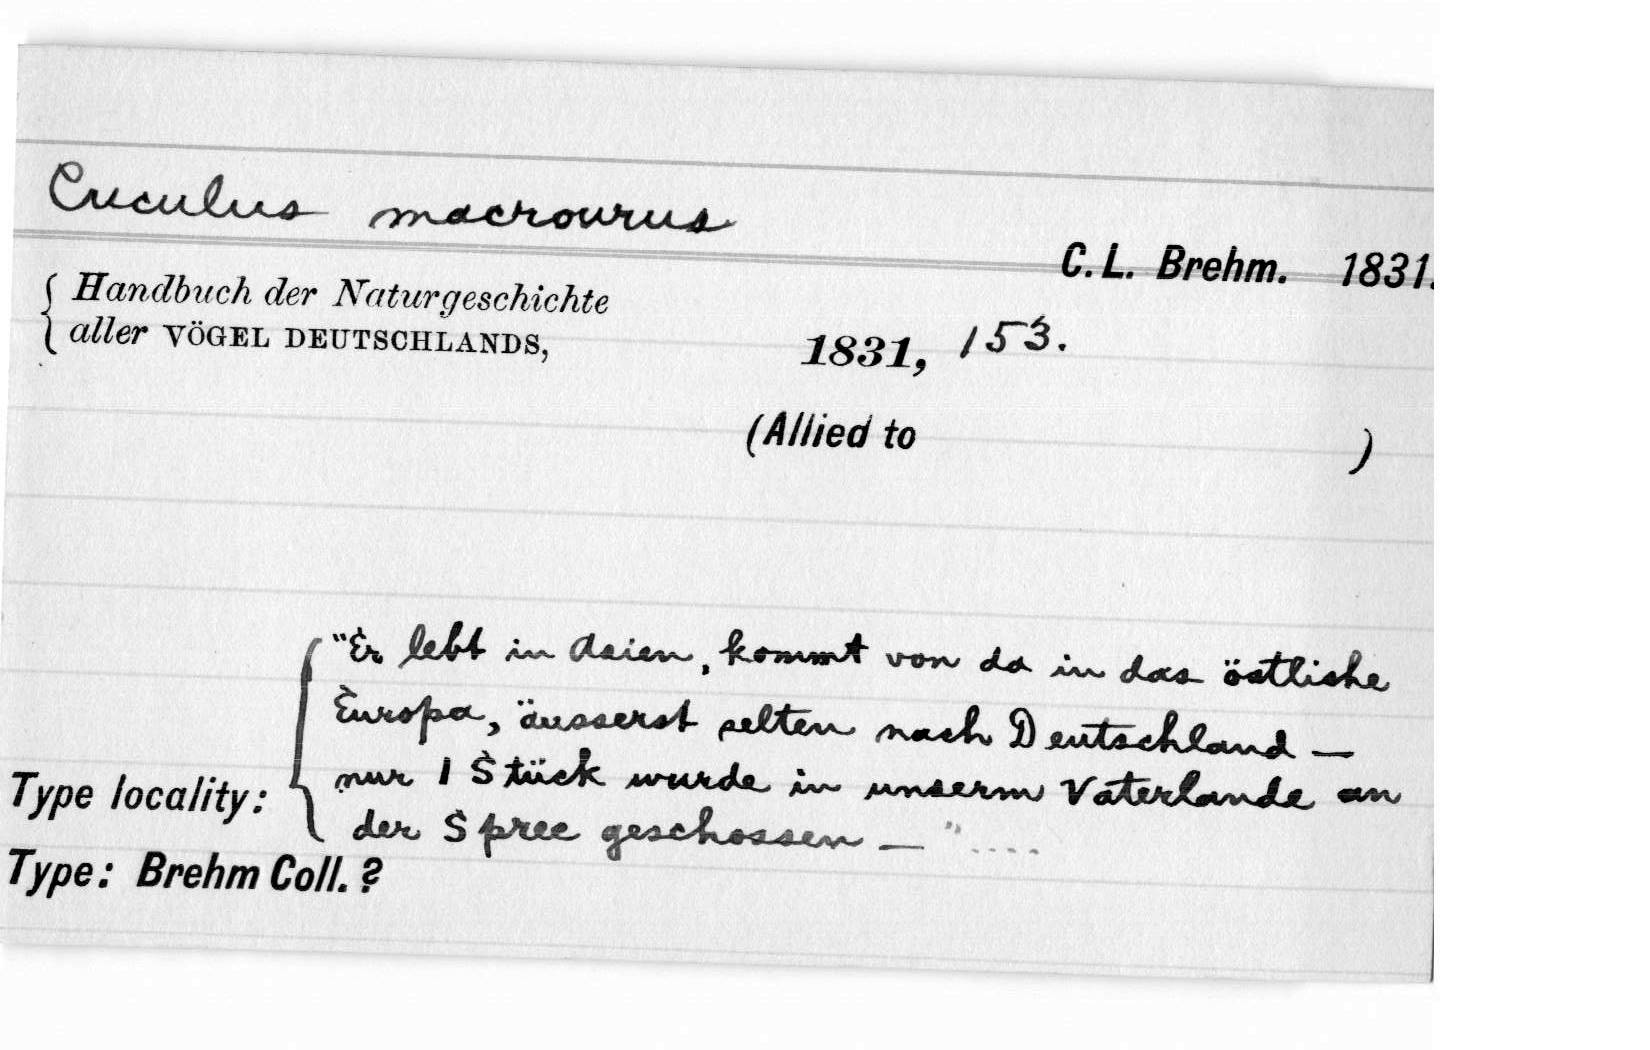 Cuculus macrourus
C. L. Brehm. 1831.
Handbuch der Naturgeschichte
aller VÖGEL DEUTSCHLANDS,
1831, 153.
(Allied to )
"Er lebt in Asien, kommt von da in das östliche
Europa, äusserst selten nach Deutschland —
nur 1 Stück wurde in unserm Vaterlande an
der Spree geschossen — " ....
Type locality:
Type: Brehm Coll. ?